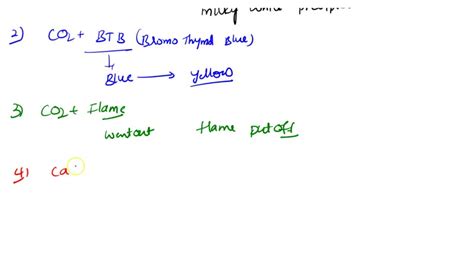 milky white precipi
2) CO2 + BTB (Bromo Thymol Blue)
Blue → Yellow
3) CO2 + Flame
went out flame put off
4) Ca